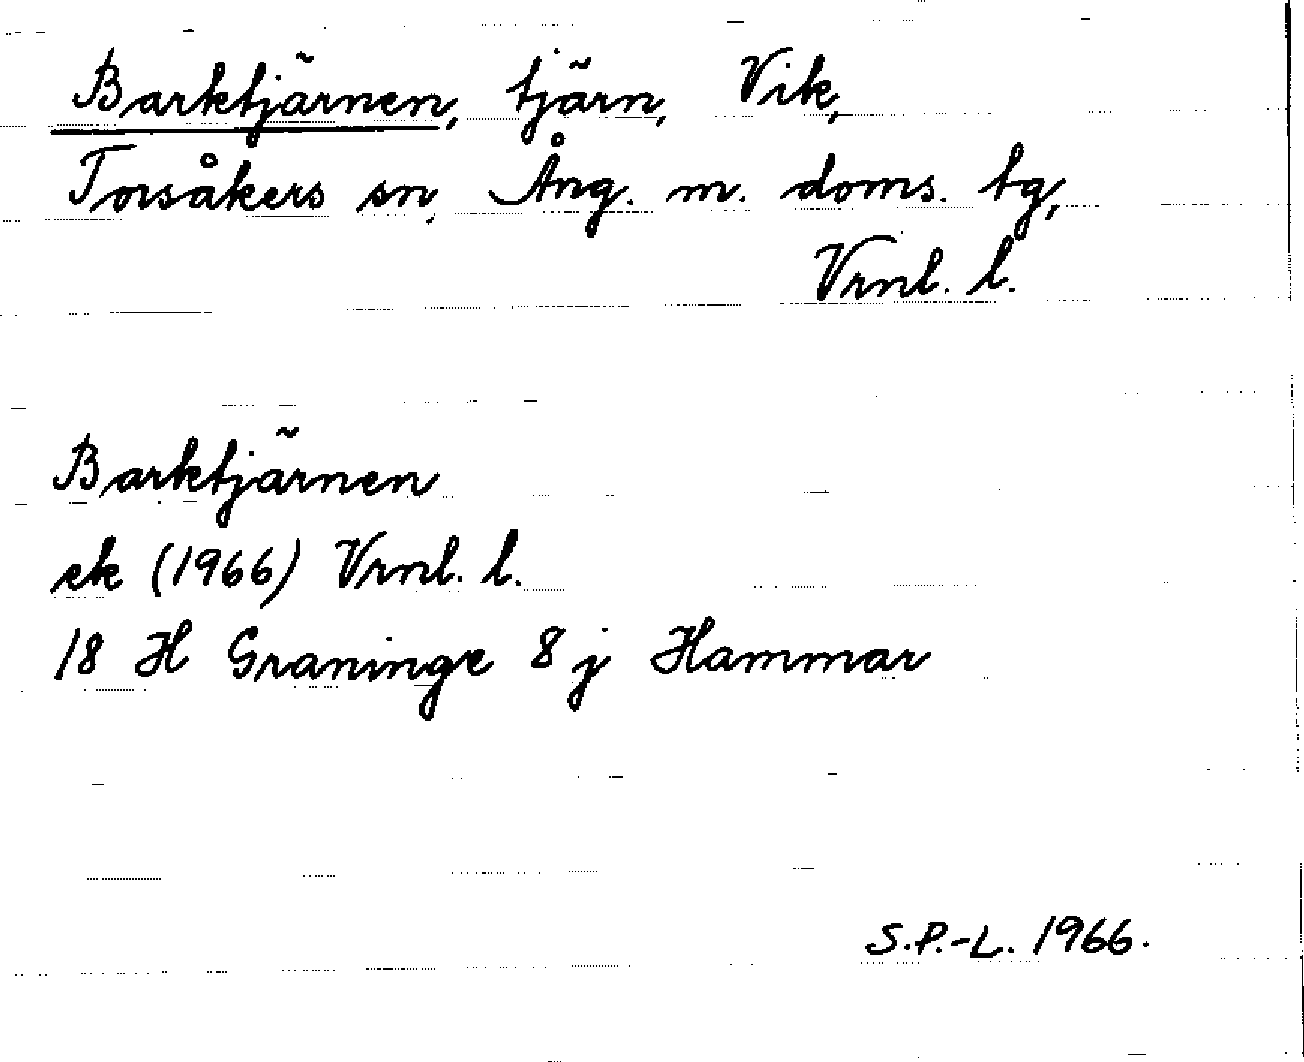 Barktjärnen, tjärn, Vik,
Torsåkers sn, Ång. m. doms. tg,
Vrnl. l.
Barktjärnen
ek (1966) Vrnl. l.
18 H Graninge 8 j Hammar
S.P.-L. 1966.